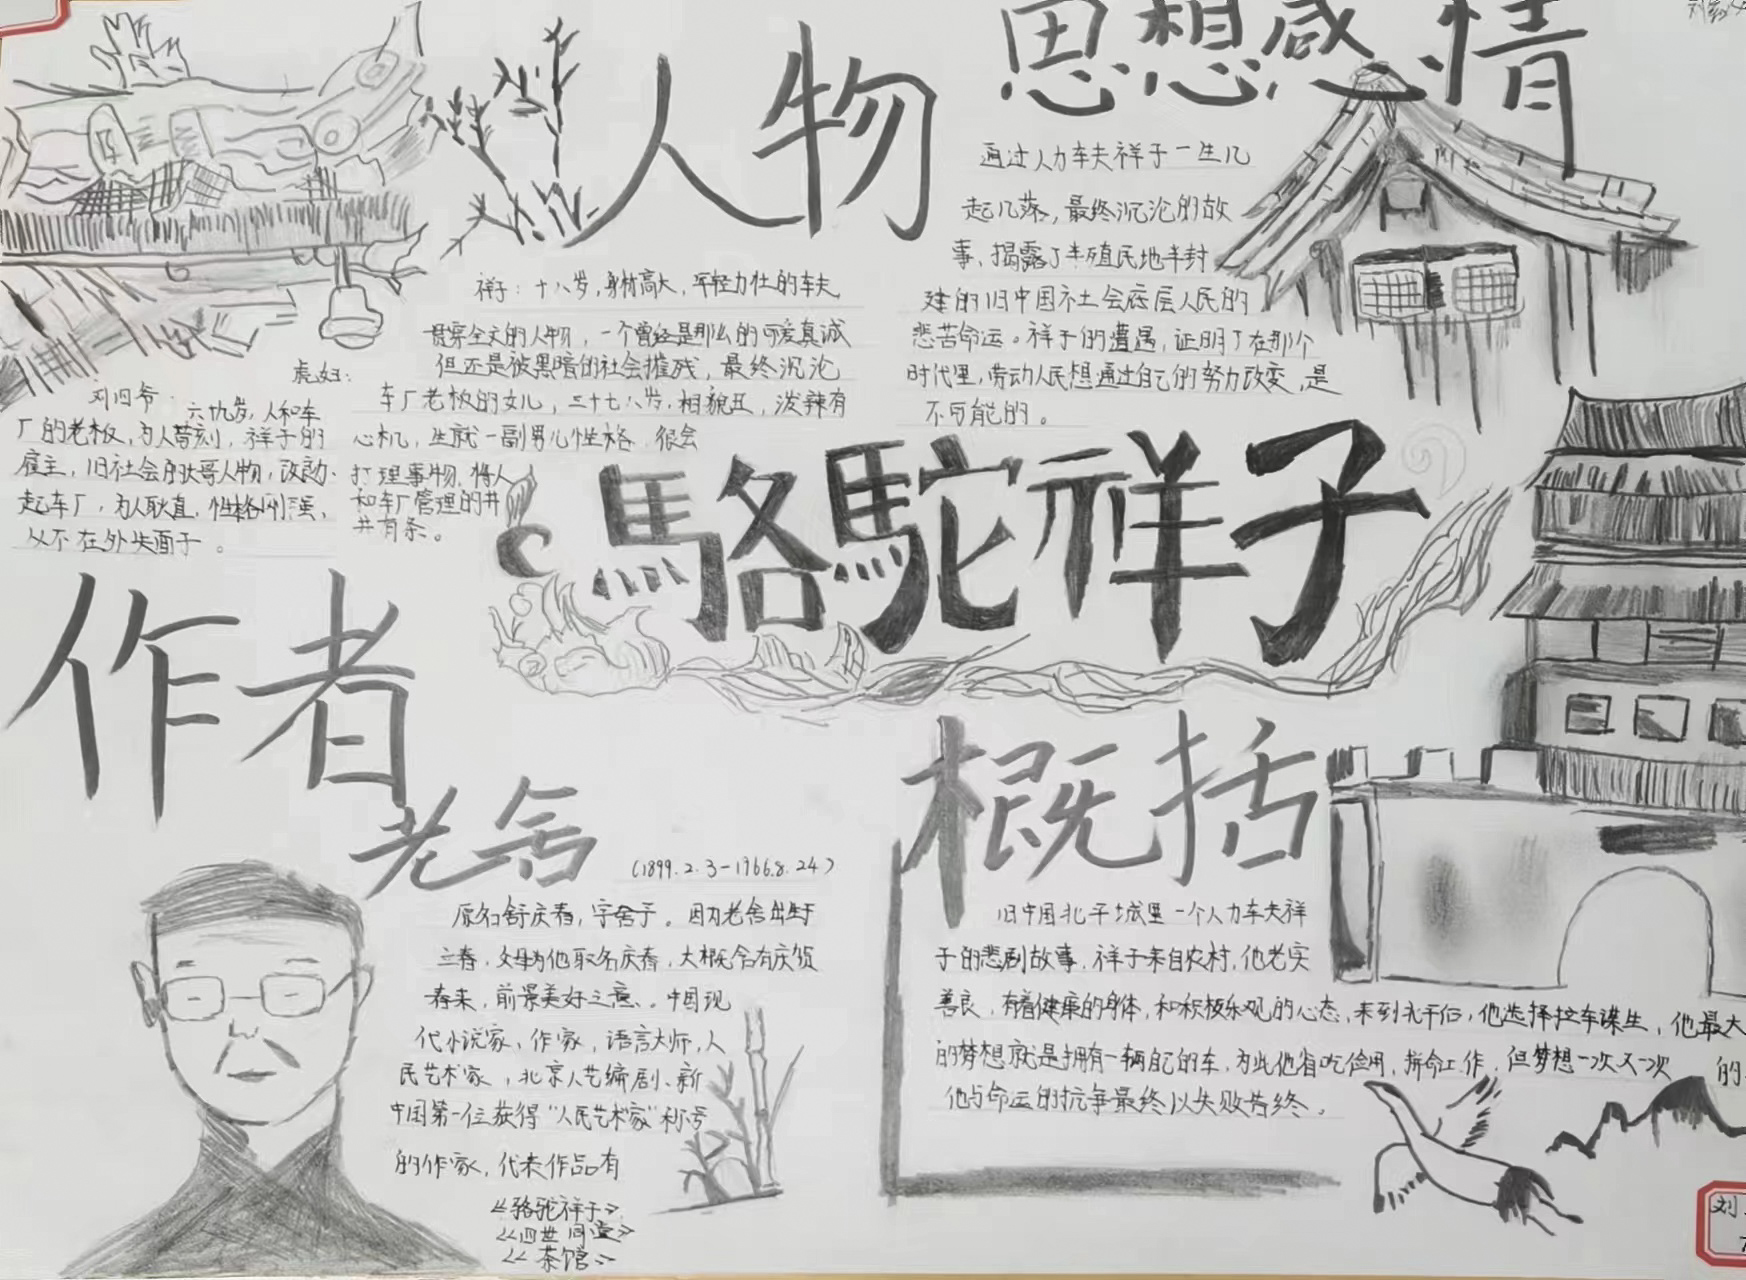 人物
祥子：十八岁，身材高大，年轻力壮的车夫
贯穿全文的人物，一个曾经是那么的可爱真诚
但还是被黑暗的社会摧残，最终沉沦
虎妞：
车厂老板的女儿，三十七八岁，相貌丑，泼辣有
心机，生就一副男儿性格，很会
打理事物，将人
和车厂管理的井
井有条。
刘四爷：六十九岁，人和车
厂的老板，为人苛刻，祥子的
雇主，旧社会的大哥人物，改良
起车厂，为人耿直，性格刚强，
从不在外失面子。
思想感情
通过人力车夫祥子一生几
起几落，最终沉沦的故
事，揭露了半殖民地半封
建的旧中国社会底层人民的
悲苦命运。祥子的遭遇，证明了在那个
时代里，劳动人民想通过自己的努力改变，是
不可能的。
駱駝祥子
作者
老舍
（1899.2.3－1966.8.24）
原名舒庆春，字舍予。因为老舍出生于
立春，父母为他取名庆春，大概含有庆贺
春来，前景美好之意。中国现
代小说家，作家，语言大师，人
民艺术家，北京人艺编剧、新
中国第一位获得“人民艺术家”称号
的作家，代表作品有
《骆驼祥子》
《四世同堂》
《茶馆》
概括
旧中国北平城里一个人力车夫祥
子的悲剧故事，祥子来自农村，他老实
善良，有着健康的身体，和积极乐观的心态，来到北平后，他选择拉车谋生，他最大
的梦想就是拥有一辆自己的车，为此他省吃俭用，拼命工作，但梦想一次又一次的
他与命运的抗争最终以失败告终。
刘
7